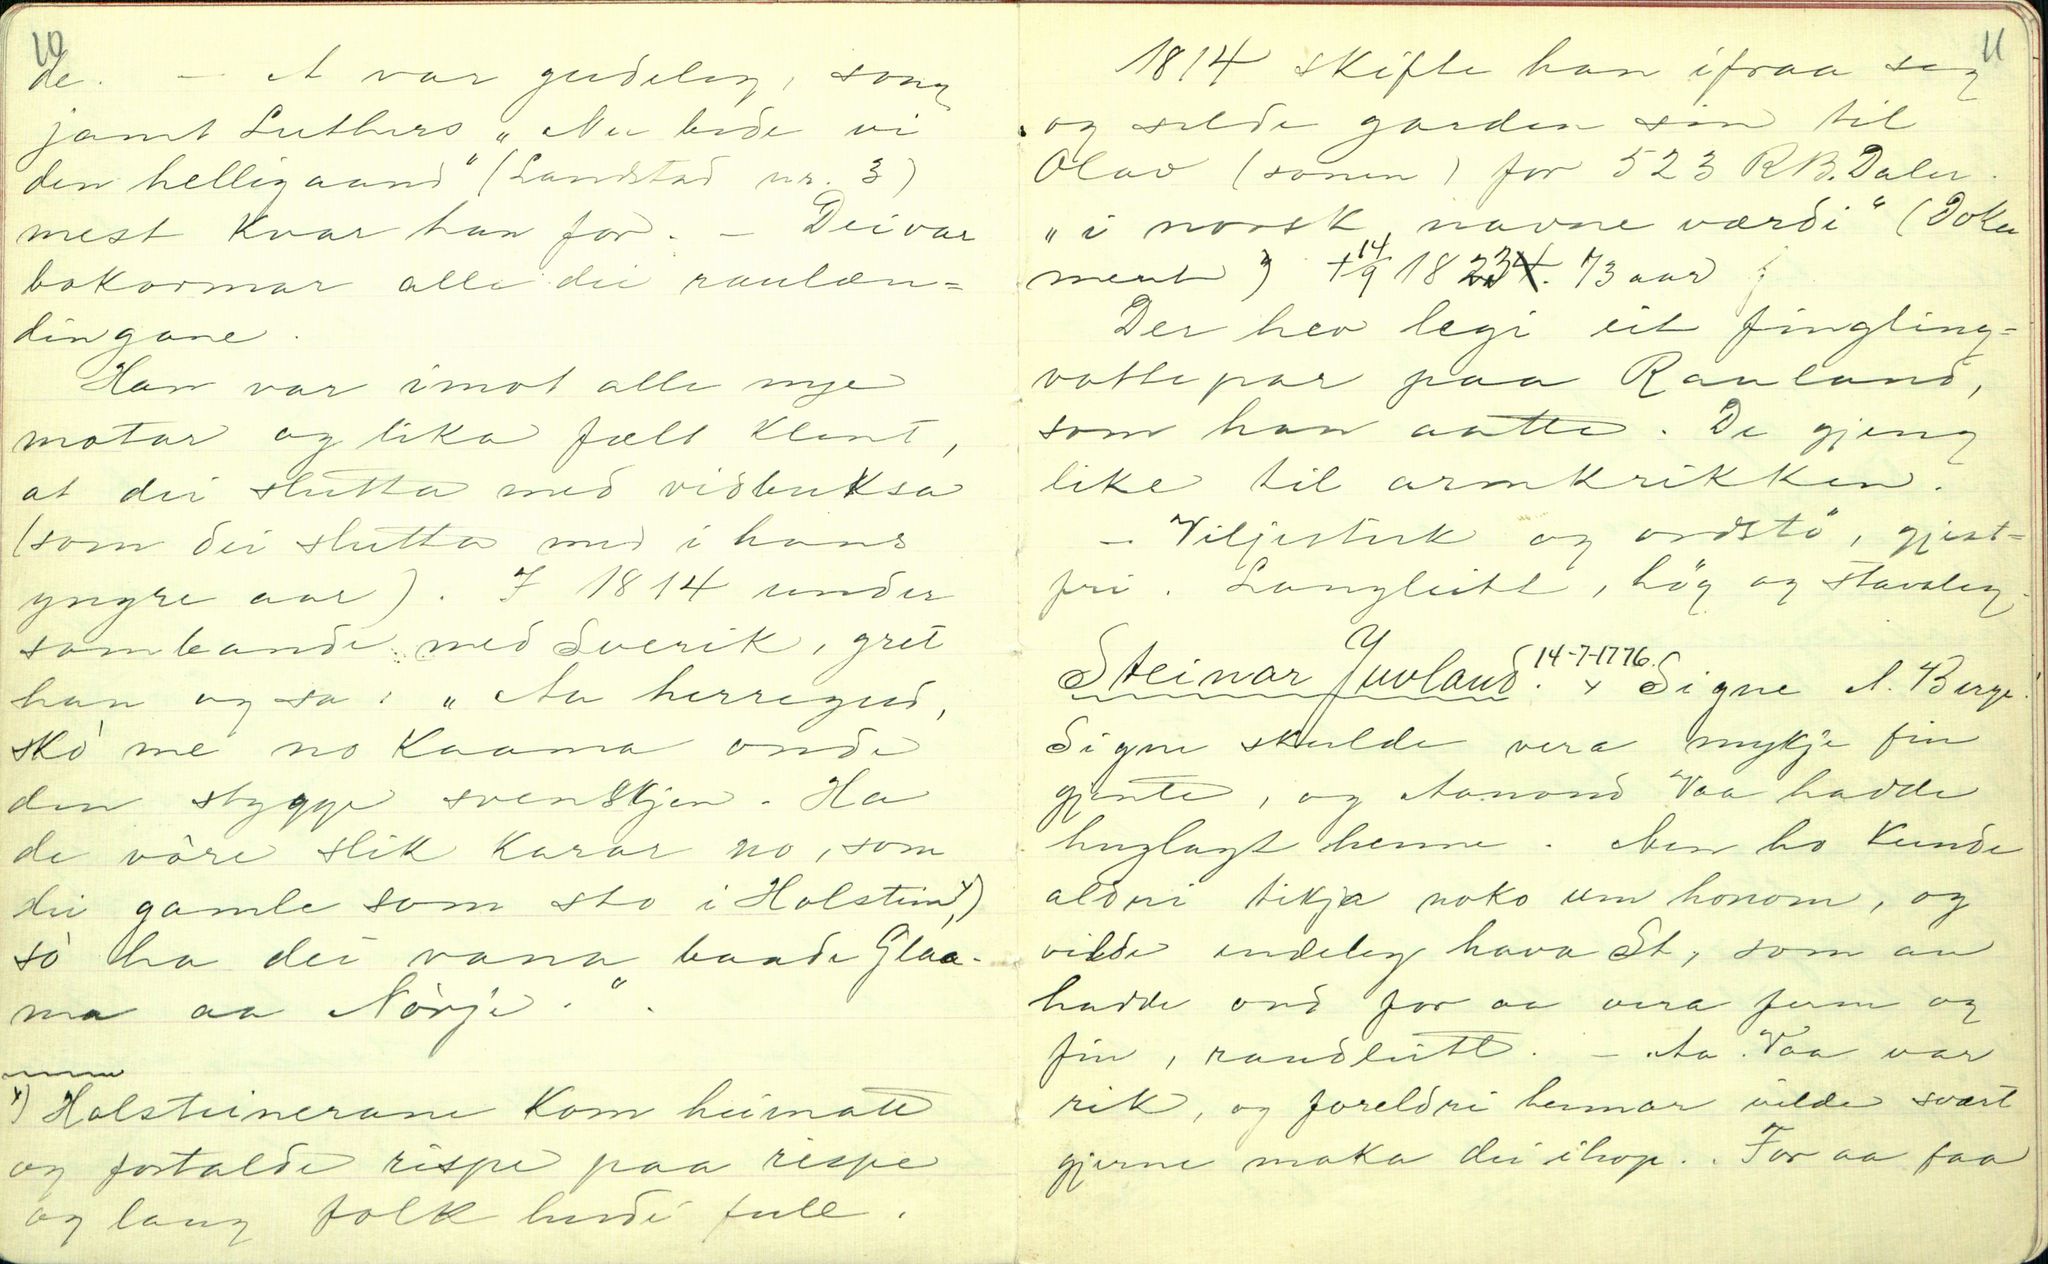 10
de. – A var gudeleg, song
jamt Luthers „Nu bede vi
den helligaand" (Landstad nr. 3)
mest kvar han for. – Dei var
bokormar alle dei raulæn=
dingane.
Han var imot alle nye
motar og lika fælt klent,
at dei slutta med vidbuksa
(som dei slutta med i hans
yngre aar). I 1814 under
sambande med Sverik, gret
han og sa: „Aa herregud,
skò me no kaama onde
den stygge svenskjen. Ha
de vòre slik karar no, som
dei gamle som sto i Holstein x)
sò ha dei vana baade Glaa-
ma aa Nòrje.".
x) Holsteinerane kom heimatt
og fortalde rispe paa rispe
og laug folk hudi full.
11
1814 skifte han ifraa seg
og selde garden sin til
Olav (sonen) for 523 RB. Daler.
„i norsk navne værdi" (Doku
ment) + 14/9 1823 4. 73 aar
Der hev legi eit fingling=
vottepar paa Rauland,
som han aatte. De gjeng
like til armkrikken.
– Viljesterk og ordstö, gjest=
fri. Langleitt, hög og stavaleg.
Steinar Juvland. 14-7-1776. x Signe A. Berge.
Signe skulde vera mykje fin
gjente, og Aanond Vaa hadde
huglagt henne. Men ho kunde
aldri tikja noko um honom, og
vilde endeleg hava St, som au
hadde ord for aa vera ferm og
fin, raudleitt. – Aa. Vaa var
rik, og foreldri hennar vilde svært
gjerne maka dei ihop. For aa faa